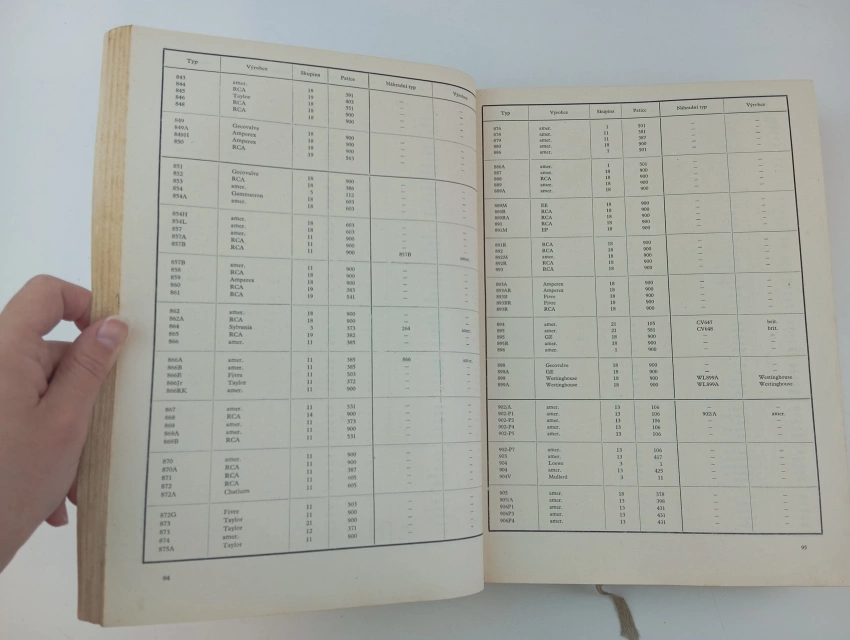 Typ Výrobce Skupina Patice Náhradní typ Výrobce
843 amer. 18 —
844 RCA 19 —
845 Taylor 18 —
846 RCA 18 900 —
848 RCA 18 900 —
849 Gecovalve 18 900 —
849A Amperex 18 900 —
849H Amperex 18 900 —
850 RCA 19 —
851 Gecovalve 18 900 —
852 RCA 18 —
853 RCA —
854 amer. 18 603 —
854A Gammatron 18 603 —
854H amer. 18 603 —
854L amer. 18 603 —
857 amer. 11 900 —
857A RCA 11 900 —
857B RCA 11 900 857B amer.
857B amer. 11 900 —
858 RCA 18 900 —
859 Amperex 18 900 —
860 RCA 19 —
861 RCA 19 541 —
862 amer. 18 900 —
862A RCA 18 900 —
864 Sylvania 3 373 264 amer.
865 RCA 19 382 —
866 amer. 11 385 —
866A amer. 11 385 866 amer.
866B amer. 11 385 —
866E Fivre 11 503 —
866Jr Taylor 11 372 —
866RK amer. 11 900 —
867 amer. 11 531 —
868 RCA 14 900 —
869 amer. 11 573 —
869A amer. 11 900 —
869B RCA 11 531 —
870 amer. 11 900 —
870A RCA 11 —
871 RCA 11 387 —
872 RCA 11 605 —
872A Chatham 11 605 —
872G Fivre 11 503 —
873 Taylor 11 900 —
873 Taylor 21 900 —
874 amer. 12 371 —
875A Taylor 11 900 —
94
Typ Výrobce Skupina Patice Náhradní typ Výrobce
876 amer. 1 501 — —
878 amer. 11 381 — —
879 amer. 11 382 — —
880 amer. 18 900 — —
886 amer. 1 501 — —
886A amer. 1 501 — —
887 amer. 18 900 — —
888 RCA 18 900 — —
889 RCA 18 900 — —
889A amer. 18 900 — —
889M EE 18 900 — —
889R RCA 18 900 — —
889RA RCA 18 900 — —
891 RCA 18 900 — —
891M EP 18 900 — —
891R RCA 18 900 — —
892 RCA 18 900 — —
892M amer. 18 900 — —
892R RCA 18 900 — —
893 RCA 18 900 — —
893A Amperex 18 900 — —
893AR Amperex 18 900 — —
893B Fivre 18 900 — —
893BR Fivre 18 900 — —
893R RCA 18 900 — —
894 amer. 21 105 CV647 brit.
895 amer. 21 582 CV648 brit.
895 GE 18 900 — —
895R amer. 18 900 — —
896 amer. 1 900 — —
898 Gecovalve 18 900 — —
898A GE 18 900 — —
899 Westinghouse 18 900 WL899A Westinghouse
899A Westinghouse 18 900 WL899A Westinghouse
902/A amer. 13 106 — —
902-P1 amer. 13 106 902/A amer.
902-P2 amer. 13 106 — —
902-P4 amer. 13 106 — —
902-P5 amer. 13 106 — —
902-P7 amer. 13 106 — —
903 amer. 13 427 — —
904 Loewe 3 3 — —
904 amer. 13 425 — —
904V Mullard 3 11 — —
905 amer. 13 378 — —
905/A amer. 13 398 — —
906P1 amer. 13 431 — —
906P3 amer. 13 431 — —
906P4 amer. 13 431 — —
95